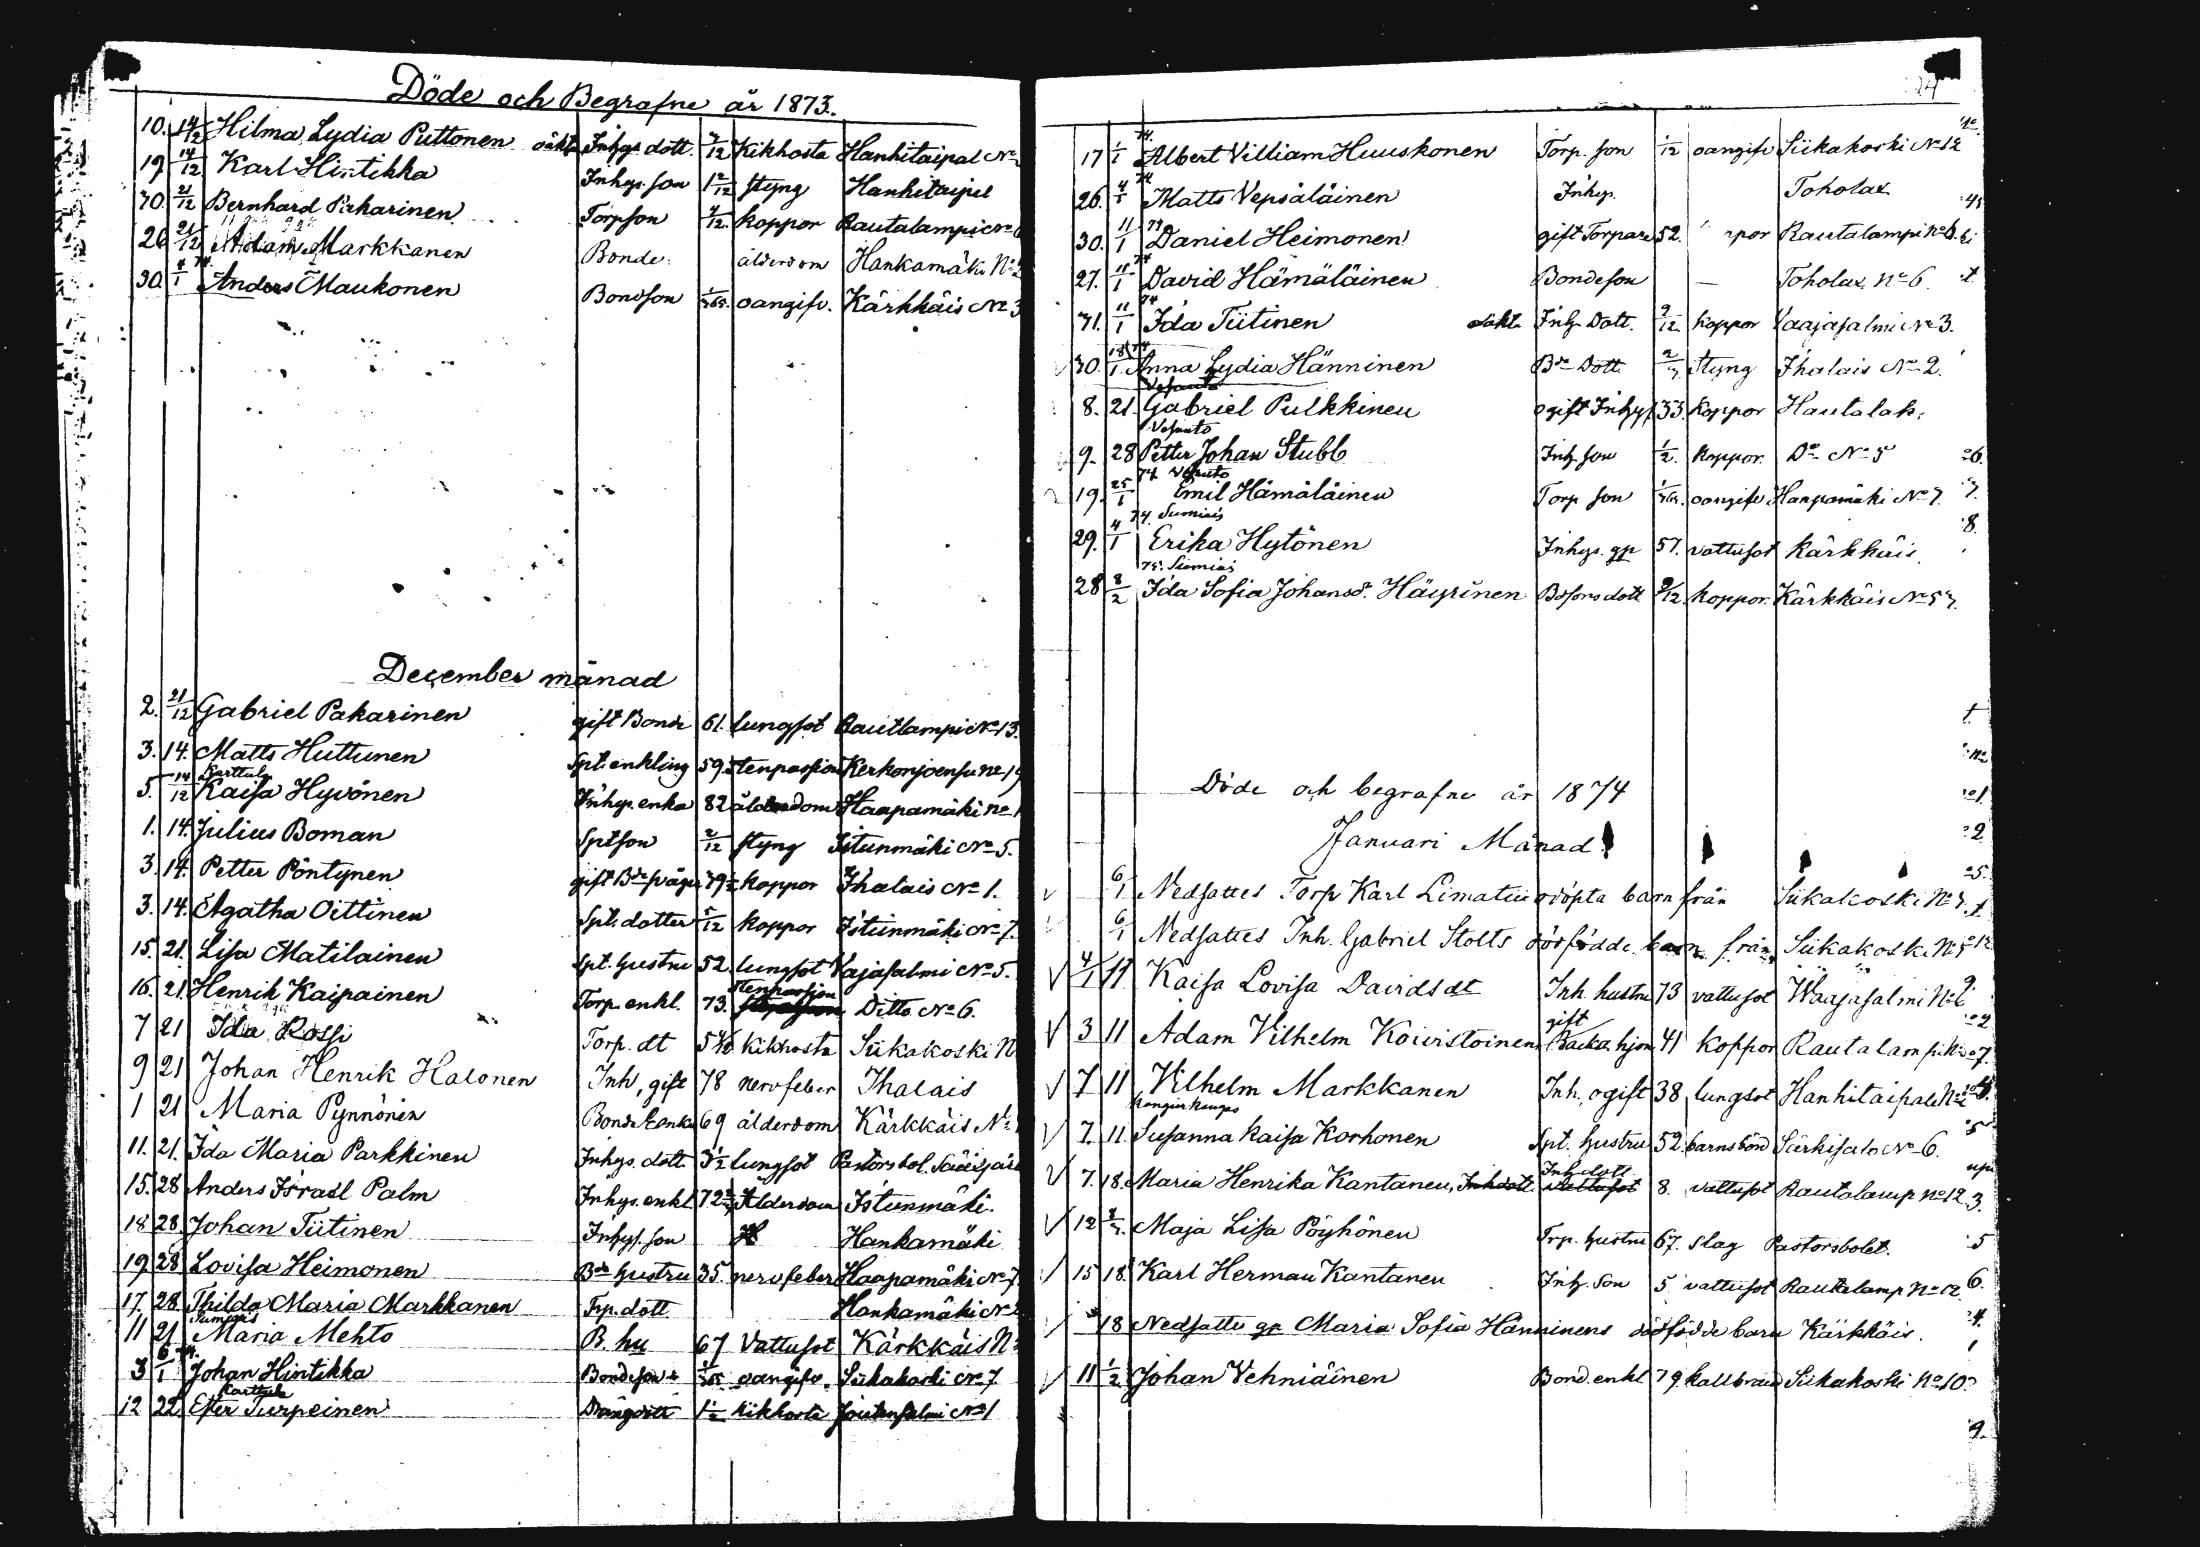 Döde och Begrafne år 1873.
10. 14/12 Hilma Lydia Puttonen oäkta Inhys dott. 7/12 Kikhosta Hanhitaipal No
19 14/12 Karl Hintikka Inhys. son 1 2/12 styng Hanhitaipal
30. 21/12 Bernhard Pakarinen Torpson 4/12. koppor Rautalampi No 6
26 21/12 Adam Markkanen Bonde ålderdom Hankamäki No
30 4/1 74. Anders Maukonen Bondson 1/365. oangifv. Kärkkäis No 3
December månad
2. 21/12 Gabriel Pakarinen gift Bonde 61. lungsot Rautlampi No 13.
3. 14. Matts Huttunen Spt. enkling 59. stenpassion Kerkonjoensu No 19
Karttula
5. 14/12 Kaisa Hyvönen Inhys. enka 82 ålderdom Haapamäki No 1
1. 14. Julius Boman Sptson 2/12 styng Istunmäki No 5.
3. 14. Petter Pöntynen gift Bde 79 1/2 koppor Ihalais No 1.
3. 14. Agatha Oittinen Spt. dotter 5/12 koppor Istunmäki No 7.
15. 21. Lisa Matilainen Spt. hustru 52. lungsot Vajasalmi No 5.
stenpassion
16. 21. Henrik Kaipainen Torp. enkl. 73. Ditto No 6.
7 21 Ida Rossi Torp. dt 5 1/2 kikhosta Siikakoski N
9 21 Johan Henrik Halonen Inh, gift 78 nervfeber Ihalais
1 21 Maria Pynnönen Bonde Eenka 69 ålderdom Kärkkäis No
11. 21. Ida Maria Parkkinen Inhys. dott. 3 1/2 lungsot Pastorsbol.
15. 28 Anders Israel Palm Inhys. enkl 72 Ålderdom Istunmäki.
18 28. Johan Tiitinen Inhys. son Hankamäki
19 28. Lovisa Heimonen Bde hustru 35. nervfeber Haapamäki No 7
17. 28 Thilda Maria Markkanen Trp. dott Hankamäki No
Sumiais
11 21 Maria Mehto B. hu 67 Vattusot Kärkkäis No
3 6/1 74. Johan Hintikka Bondeson 1/365 oangifv. Siikakoski No 7
Karttula
12 22. Ester Turpeinen Drängdott 1 1/2 kikhosta No 1
17 1/1 74. Albert Villiam Huuskonen Torp. son 1/12 oangifv Siikakoski No 12
26. 4/1 74 Matts Vepsäläinen Inhys. Toholax
30. 11/1 74 Daniel Heimonen gift Torpare 52. Rautalampi No 6.
27. 11/1 74 David Hämäläinen Bondeson — Toholax No 6
31. 11/1 74 Ida Tiitinen oäkt. Inh. Dott. 9/12. koppor Vaajasalmi No 3.
30. 18/1. 74 Anna Lydia Hänninen Bde Dott. styng Ihalais No 2.
Vesanto
8. 21. Gabriel Pulkkinen ogift Inhys 33. koppor Hautalah.
Vesanto
9. 28 Petter Johan Stubb Inh. son 1/2. koppor. Do No 5
74 Vesanto
19. 25/1 Emil Hämäläinen Torp son 1/365. oangifv Haapamäki No 7.
74. Sumiais
29. 4/1 Erika Hytönen Inhys. gp 57. vattusot Kärkkäis.
Sumiais
28 8/2 Ida Sofia Johansd. Häyrinen Bdsons dott 9/12. koppor. Kärkkäis No 57.
Döde och begrafne år 1874
Januari Månad
6/1 Nedsattes Torp Karl Limatius odöpta barn från Siikakoski No 7.
6/1 Nedsattes Inh. Gabriel Stolts dödfödde barn från Siikakoski No 5
4/1 11 Kaisa Lovisa Davidsdt Inh. hustru 73 vattusot Waajasalmi No
gift
3 11 Adam Vilhelm Koivistoinen Backa hjon 41 koppor Rautalampi No 7.
7 11 Vilhelm Markkanen Inh., ogift 38 lungsot Hanhitaipale No
Kangaskampo
7. 11. Susanna Kaisa Korhonen Spt. hustru 52. barnsbörd Särkisalo No 6.
Inh. dott
7. 18. Maria Henrika Kantanen, Inh dott vattusot 8. vattusot Rautalamp No 12
12 Maja Lisa Pöyhönen Trp. hustru 67. slag Pastorsbolet.
15 18. Karl Herman Kantanen Inh. Son 5 vattusot Rautalamp No 12.
18 Nedsattes gp Maria Sofia Hänninens dödfödde barn Kärkkäis.
11 1/2 Johan Vehniäinen Bond. enkl 79. kallbrand Siikakoski No 10